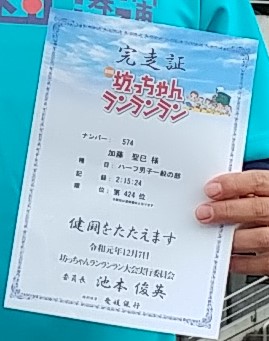 完走証
坊っちゃん
ランランラン
ナンバー: 574
加藤 聖巳 様
種目: ハーフ男子一般の部
記録: 2:15:24
順位: 第 424 位
健闘をたたえます
令和元年12月7日
坊っちゃんランランラン大会実行委員会
委員長 池本 俊英
愛媛銀行